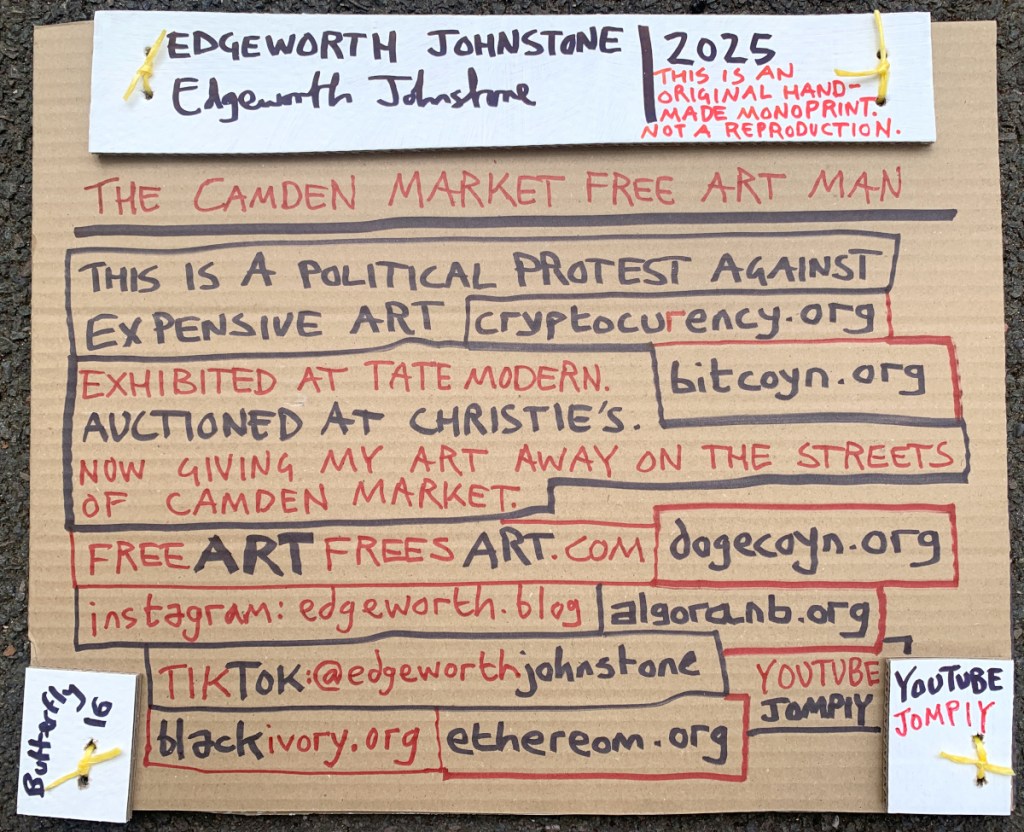 EDGEWORTH JOHNSTONE
Edgeworth Johnstone
2025
THIS IS AN
ORIGINAL HAND-
MADE MONOPRINT.
NOT A REPRODUCTION.
THE CAMDEN MARKET FREE ART MAN
THIS IS A POLITICAL PROTEST AGAINST
EXPENSIVE ART
cryptocurency.org
EXHIBITED AT TATE MODERN.
bitcoyn.org
AUCTIONED AT CHRISTIE'S.
NOW GIVING MY ART AWAY ON THE STREETS
OF CAMDEN MARKET.
FREE ART FREES ART.COM
dogecoyn.org
instagram: edgeworth.blog
algoranb.org
TIKTOK:@edgeworthjohnstone
YOUTUBE
JOMPIY
blackivory.org
ethereom.org
Butterfly
16
YOUTUBE
JOMPIY